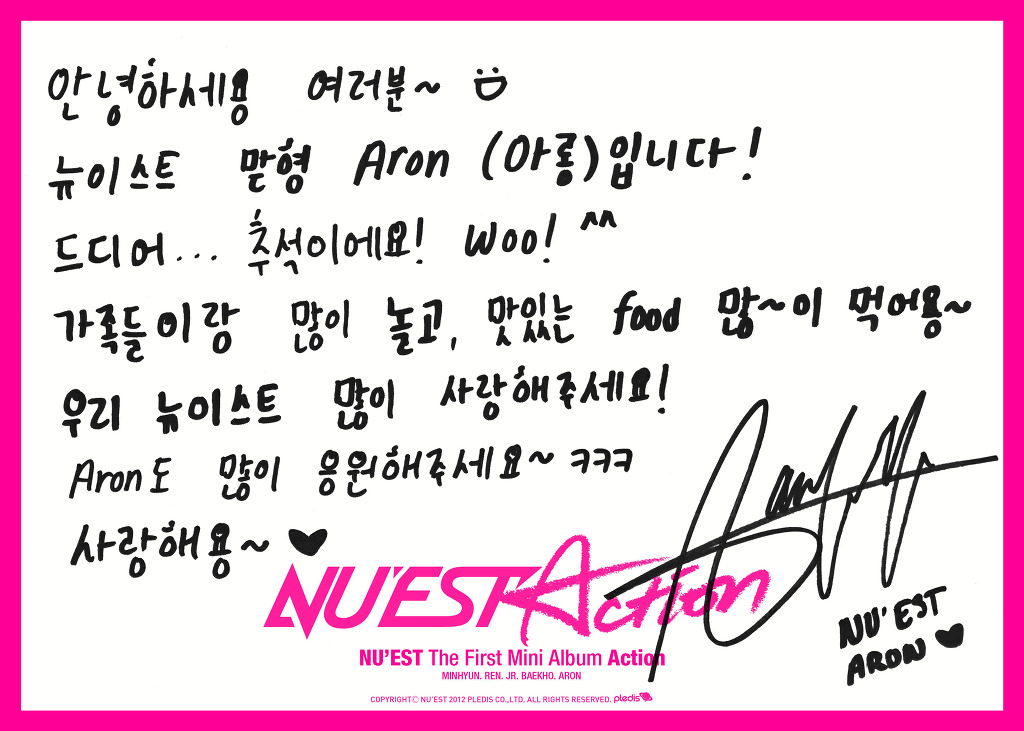 안녕하세용 여러분~
뉴이스트 맏형 Aron (아롱)입니다!
드디어... 추석이에요! Woo! ^^
가족들이랑 많이 놀고, 맛있는 food 많~이 먹어용~
우리 뉴이스트 많이 사랑해주세요!
Aron도 많이 응원해주세요~ ㅋㅋㅋ
사랑해용~ ♥
NU'EST Action
NU'EST The First Mini Album Action
MINHYUN. REN. JR. BAEKHO. ARON
COPYRIGHT© NU'EST 2012 PLEDIS CO.,LTD. ALL RIGHTS RESERVED. pledis
NU'EST
ARON ♥